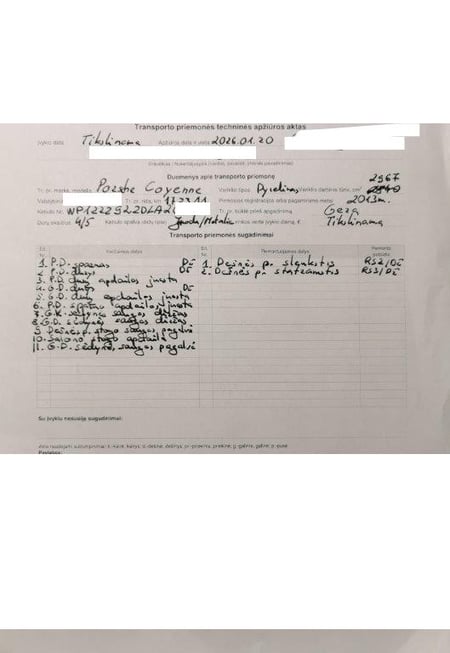 Transporto priemonės techninės apžiūros aktas
Įvykio data Tikslinama Apžiūros data ir vieta 2026.01.20
Duomenys apie transporto priemonę
Tr. pr. markė, modelis Porshe Cayenne Variklio tipas Dyzelinas Variklio darbinis tūris, cm³ 2967
Valst. Nr. 173211 Pirmosios registracijos arba pagaminimo metai 2013m.
Kėbulo Nr. WP1ZZZ92ZDLA2 Tr. pr. būklė prieš apgadinimą Gera
Durų skaičius 4/5 Kėbulo spalva (dažų tipas) Juoda/Metalic rinkos vertė įvykio dieną, € Tikslinama
Transporto priemonės sugadinimai
Eil. Nr. Keičiamos dalys Eil. Nr. Remontuojamos dalys Remonto sudėtis
1. P.D. sparnas Dė 1. Dešinės p. slenkstis RS2/Dė
2. P.D. durys Dė 2. Dešinės p. statramstis RS3/Dė
3. P.D. durų apdailos juosta
4. G.D. durys Dė
5. G.D. durų apdailos juosta
6. P.D. sparno apdailos juosta
7. G.K. sėdynės saugos diržas
8. G.D. sėdynės saugos diržas
9. Dešinės p. stogo saugos pagalvė
10. Salono stogo apdaila
11. G.D. sėdynės saugos pagalvė
Su įvykiu nesusiję sugadinimai:
Pastabos: